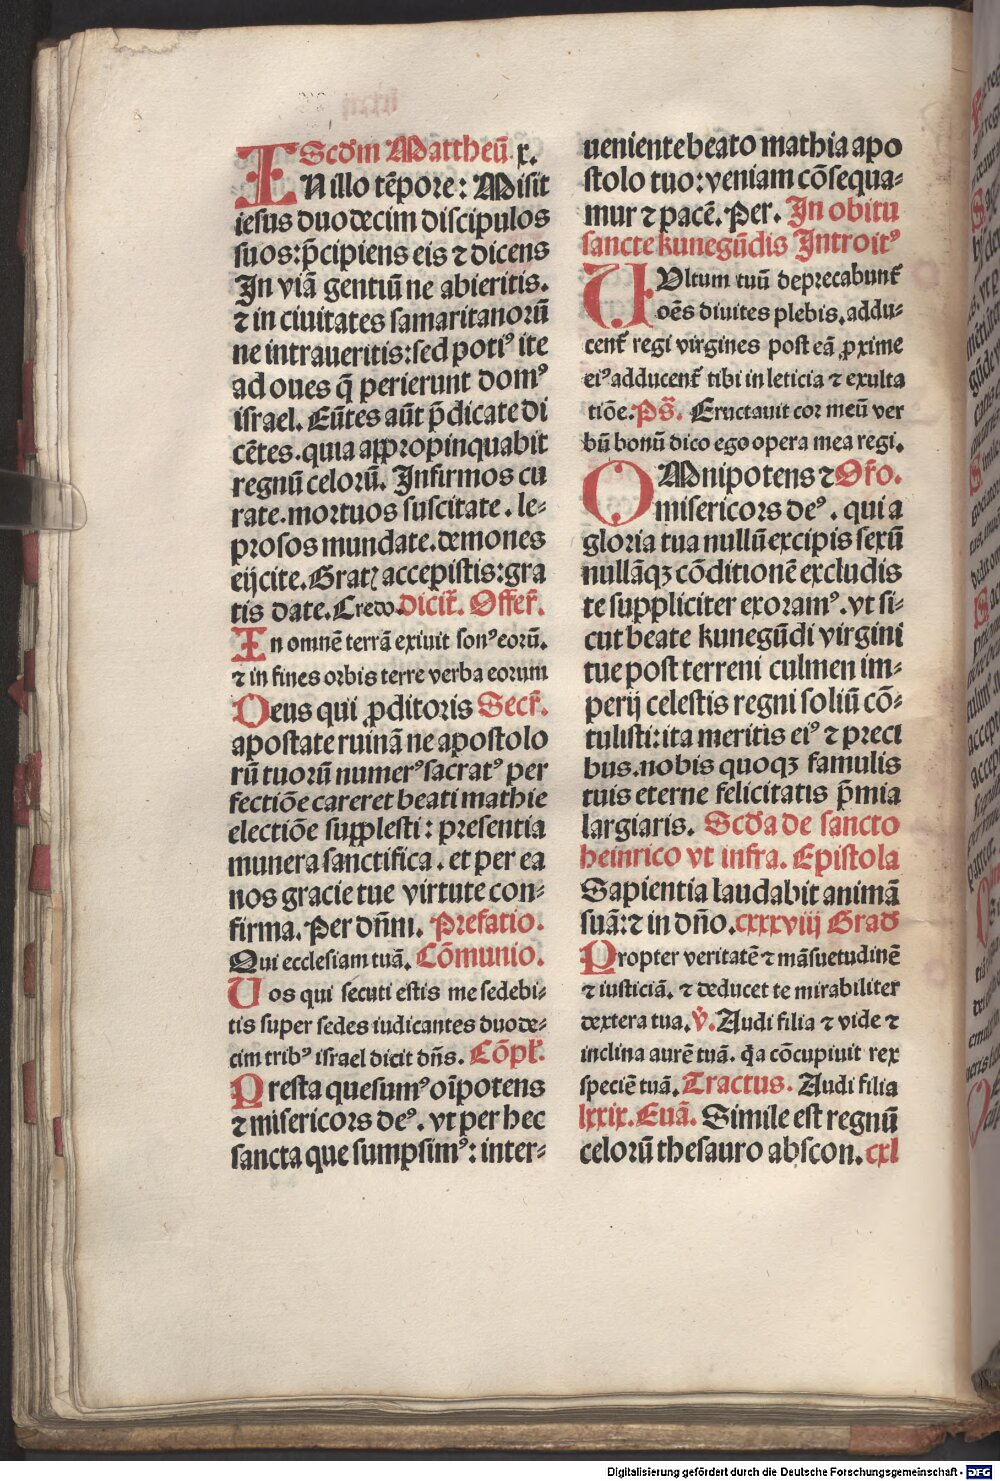 Scd̄m Mattheū .x.
IN illo tēpore: Misit
iesus duodecim discipulos
suos: p̄cipiens eis ⁊ dicens
In viā gentiū ne abieritis.
⁊ in ciuitates samaritanorū
ne intraueritis: sed potiꝰ ite
ad oues q̄ perierunt domꝰ
israel. Eūtes aūt p̄dicate di
cētes. quia appropinquabit
regnū celorū. Infirmos cu
rate. mortuos suscitate. le⸗
prosos mundate. demones
eijcite. Gratꝭ accepistis: gra
tis date. Credo. Dicit̄. Offer̄.
In omnē terrā exiuit sonꝰ eorū.
⁊ in fines orbis terre verba eorum
Deus qui ꝓditoris Secr̄.
apostate ruinā ne apostolo
rū tuorū numerꝰ sacratꝰ per
fectiōe careret beati mathie
electiōe supplesti: presentia
munera sanctifica. et per ea
nos gracie tue virtute con⸗
firma. Per dn̄m. Prefatio.
Qui ecclesiam tuā. Cōmunio.
Vos qui secuti estis me sedebi⸗
tis super sedes iudicantes duode⸗
cim tribꝰ israel dicit dn̄s. Cōpl̄.
Presta quesumꝰ oīpotens
⁊ misericors deꝰ. vt per hec
sancta que sumpsimꝰ: inter⸗
ueniente beato mathia apo
stolo tuo: veniam cōsequa⸗
mur ⁊ pacē. Per. In obitu
sancte kunegūdis Introitꝰ
VUltum tuū deprecabunt̄
oēs diuites plebis. addu⸗
cent̄ regi virgines post eā ꝓxime
eiꝰ adducent̄ tibi in leticia ⁊ exulta
tiōe. Ps̄. Eructauit cor meū ver
bū bonū dico ego opera mea regi.
OMnipotens ⁊ Or̄o.
misericors deꝰ. qui a
gloria tua nullū excipis sexū
nullāqꝫ cōditionē excludis
te suppliciter exoramꝰ. vt si⸗
cut beate kunegūdi virgini
tue post terreni culmen im⸗
perij celestis regni soliū cō⸗
tulisti: ita meritis eiꝰ ⁊ preci
bus. nobis quoqꝫ famulis
tuis eterne felicitatis p̄mia
largiaris. Scd̄a de sancto
heinrico vt infra. Epistola
Sapientia laudabit animā
suā: ⁊ in dn̄o. cxxxviij Grad̄
Propter veritatē ⁊ māsuetudinē
⁊ iusticiā. ⁊ deducet te mirabiliter
dextera tua. v̄. Audi filia ⁊ vide ⁊
inclina aurē tuā. q̄a cōcupiuit rex
speciē tuā. Tractus. Audi filia
lxxix. Euā. Simile est regnū
celorū thesauro abscon. cxl
Digitalisierung gefördert durch die Deutsche Forschungsgemeinschaft - DFG